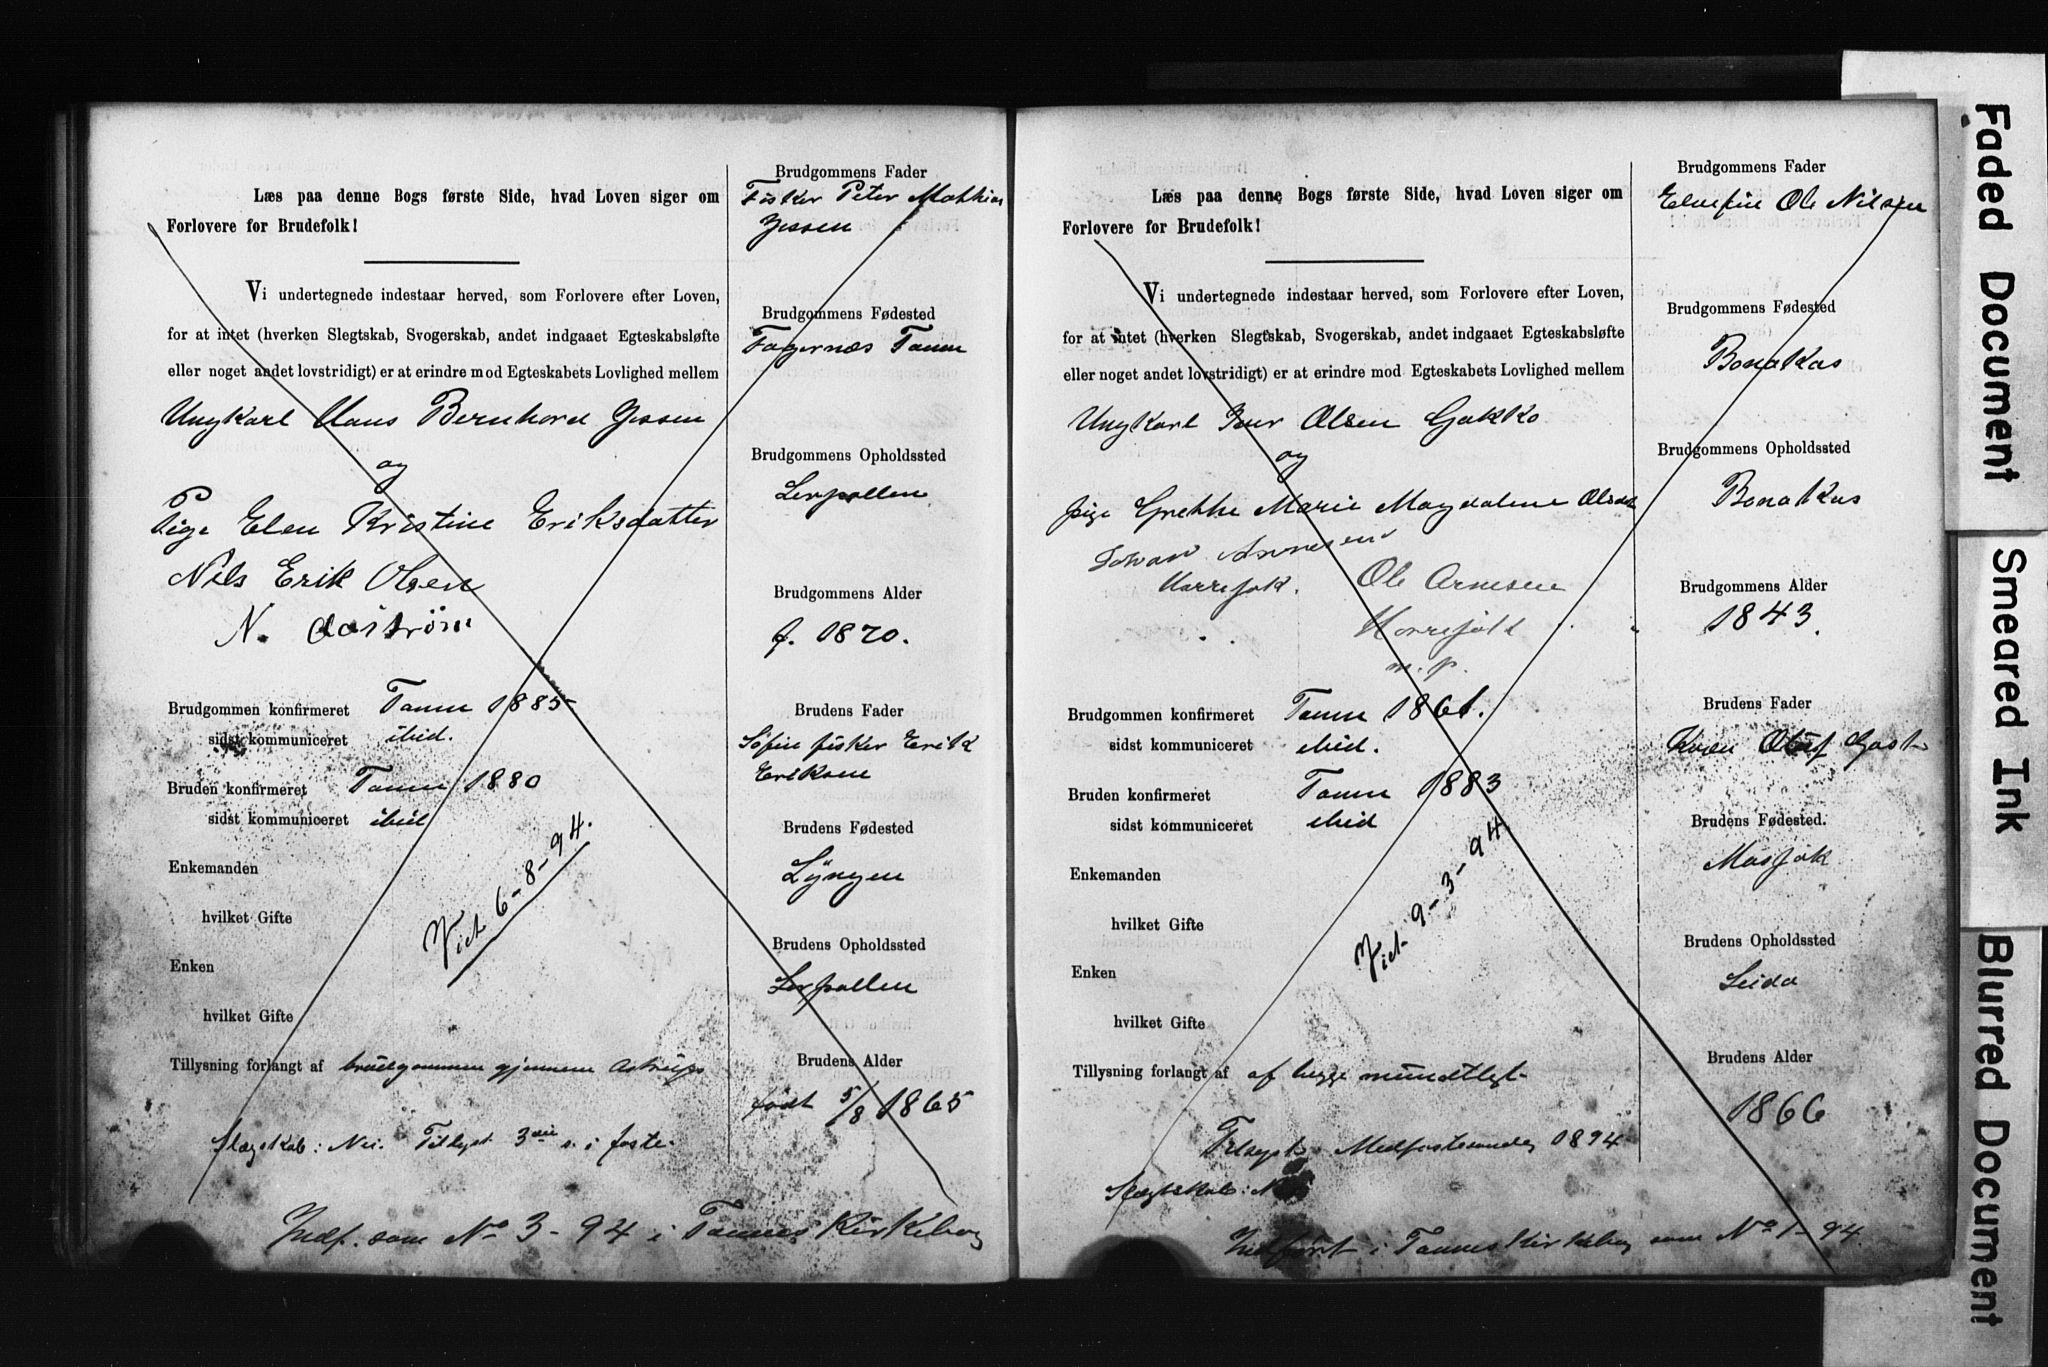 Læs paa denne Bogs første Side, hvad Loven siger om
Forlovere for Brudefolk!
Vi undertegnede indestaar herved, som Forlovere efter Loven,
for at intet (hverken Slegtskab, Svogerskab, andet indgaaet Egteskabsløfte
eller noget andet lovstridigt) er at erindre mod Egteskabets Lovlighed mellem
Ungkarl Hans Bernhard Jessen
og
Pige Elen Kristine Eriksdatter
Nils Erik Olsen
N.
Brudgommen konfirmeret Tanen 1885
sidst kommuniceret ibid.
Bruden konfirmeret Tanen 1880
sidst kommuniceret ibid
Enkemanden
hvilket Gifte
Viet 6-8-94.
Enken
hvilket Gifte
Tillysning forlangt af brudgommen gjennem Astrups
Slægskab: Nei. Tillyst 3die s. i faste.
Indf. som No 3-94 i Tanens Kirkebog
Brudgommens Fader
Fisker Peter Mathias
Jessen
Brudgommens Fødested
Fagernæs Tanen
Brudgommens Opholdssted
Lerpollen
Brudgommens Alder
f. 1870.
Brudens Fader
Søfin fisker Erik
Eriksen
Brudens Fødested
Lyngen
Brudens Opholdssted
Lerpollen
Brudens Alder
født 5/8 1865
Læs paa denne Bogs første Side, hvad Loven siger om
Forlovere for Brudefolk!
Vi undertegnede indestaar herved, som Forlovere efter Loven,
for at intet (hverken Slegtskab, Svogerskab, andet indgaaet Egteskabsløfte
eller noget andet lovstridigt) er at erindre mod Egteskabets Lovlighed mellem
Ungkarl Iver Olsen Gakko
og
pige Grethe Marie Magdalene Olsdt
Johan Arnesen
Horrejok. Ole Arnesen
Horrejok
m. p.
Brudgommen konfirmeret Tanen 1861.
sidst kommuniceret ibid.
Bruden konfirmeret Tanen 1883
sidst kommuniceret ibid
Enkemanden
hvilket Gifte
Viet 9-3-94.
Enken
hvilket Gifte
Tillysning forlangt af af begge mundtligt
Tillyst Midfastesøndag 1894
Slægtskab: Nei
Indført i Tanens Kirkebog som No 1-94.
Brudgommens Fader
Elvefin Ole Nilsen
Brudgommens Fødested
Bonakas
Brudgommens Opholdssted
Bonakas
Brudgommens Alder
1843.
Brudens Fader
Kvæn Oluf
Brudens Fødested.
Masjok
Brudens Opholdssted
Seida
Brudens Alder
1866
Faded Document
Smeared Ink
Blurred Document